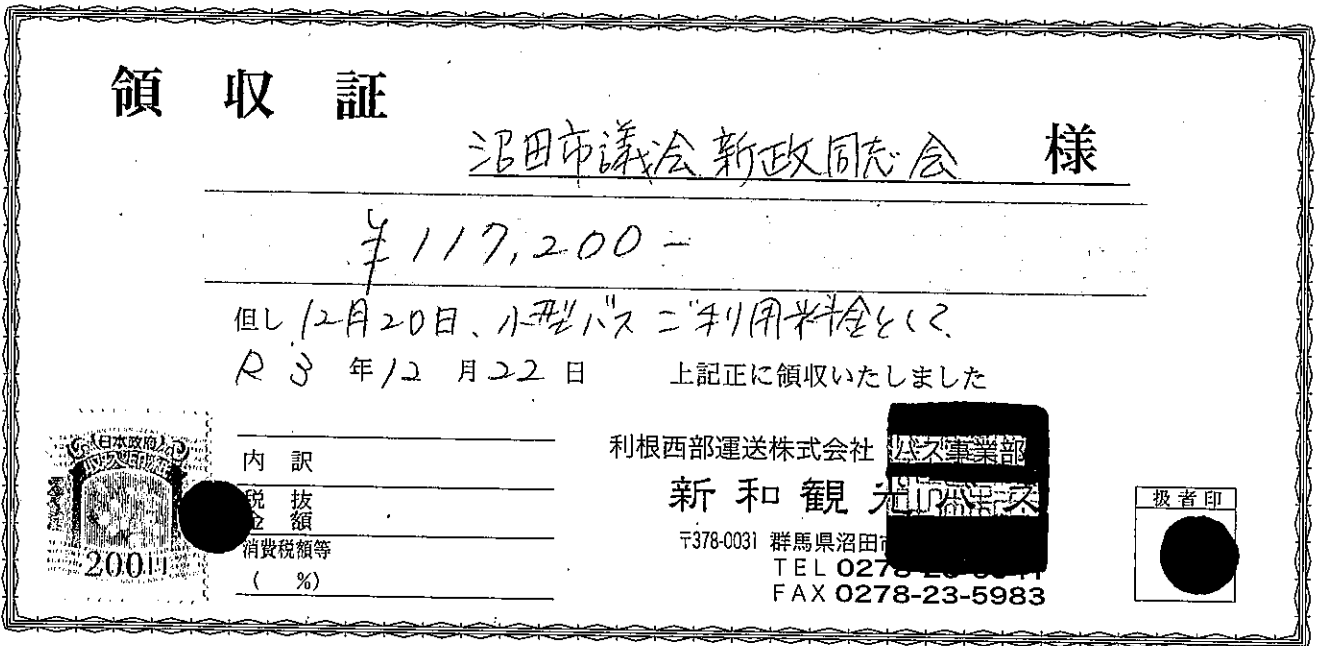 領収証
沼田市議会新政同志会 様
¥117,200-
但し 12月20日、小型バスご利用料金として
R3年12月22日 上記正に領収いたしました
日本政府
200円
内訳
税抜金額
消費税額等
( %)
利根西部運送株式会社 バス事業部
新和観光バス
〒378-0031 群馬県沼田市
TEL 0278-
FAX 0278-23-5983
扱者印